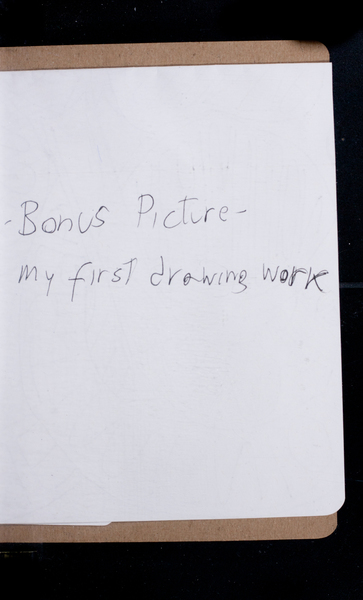 -Bonus Picture-
my first drawing work